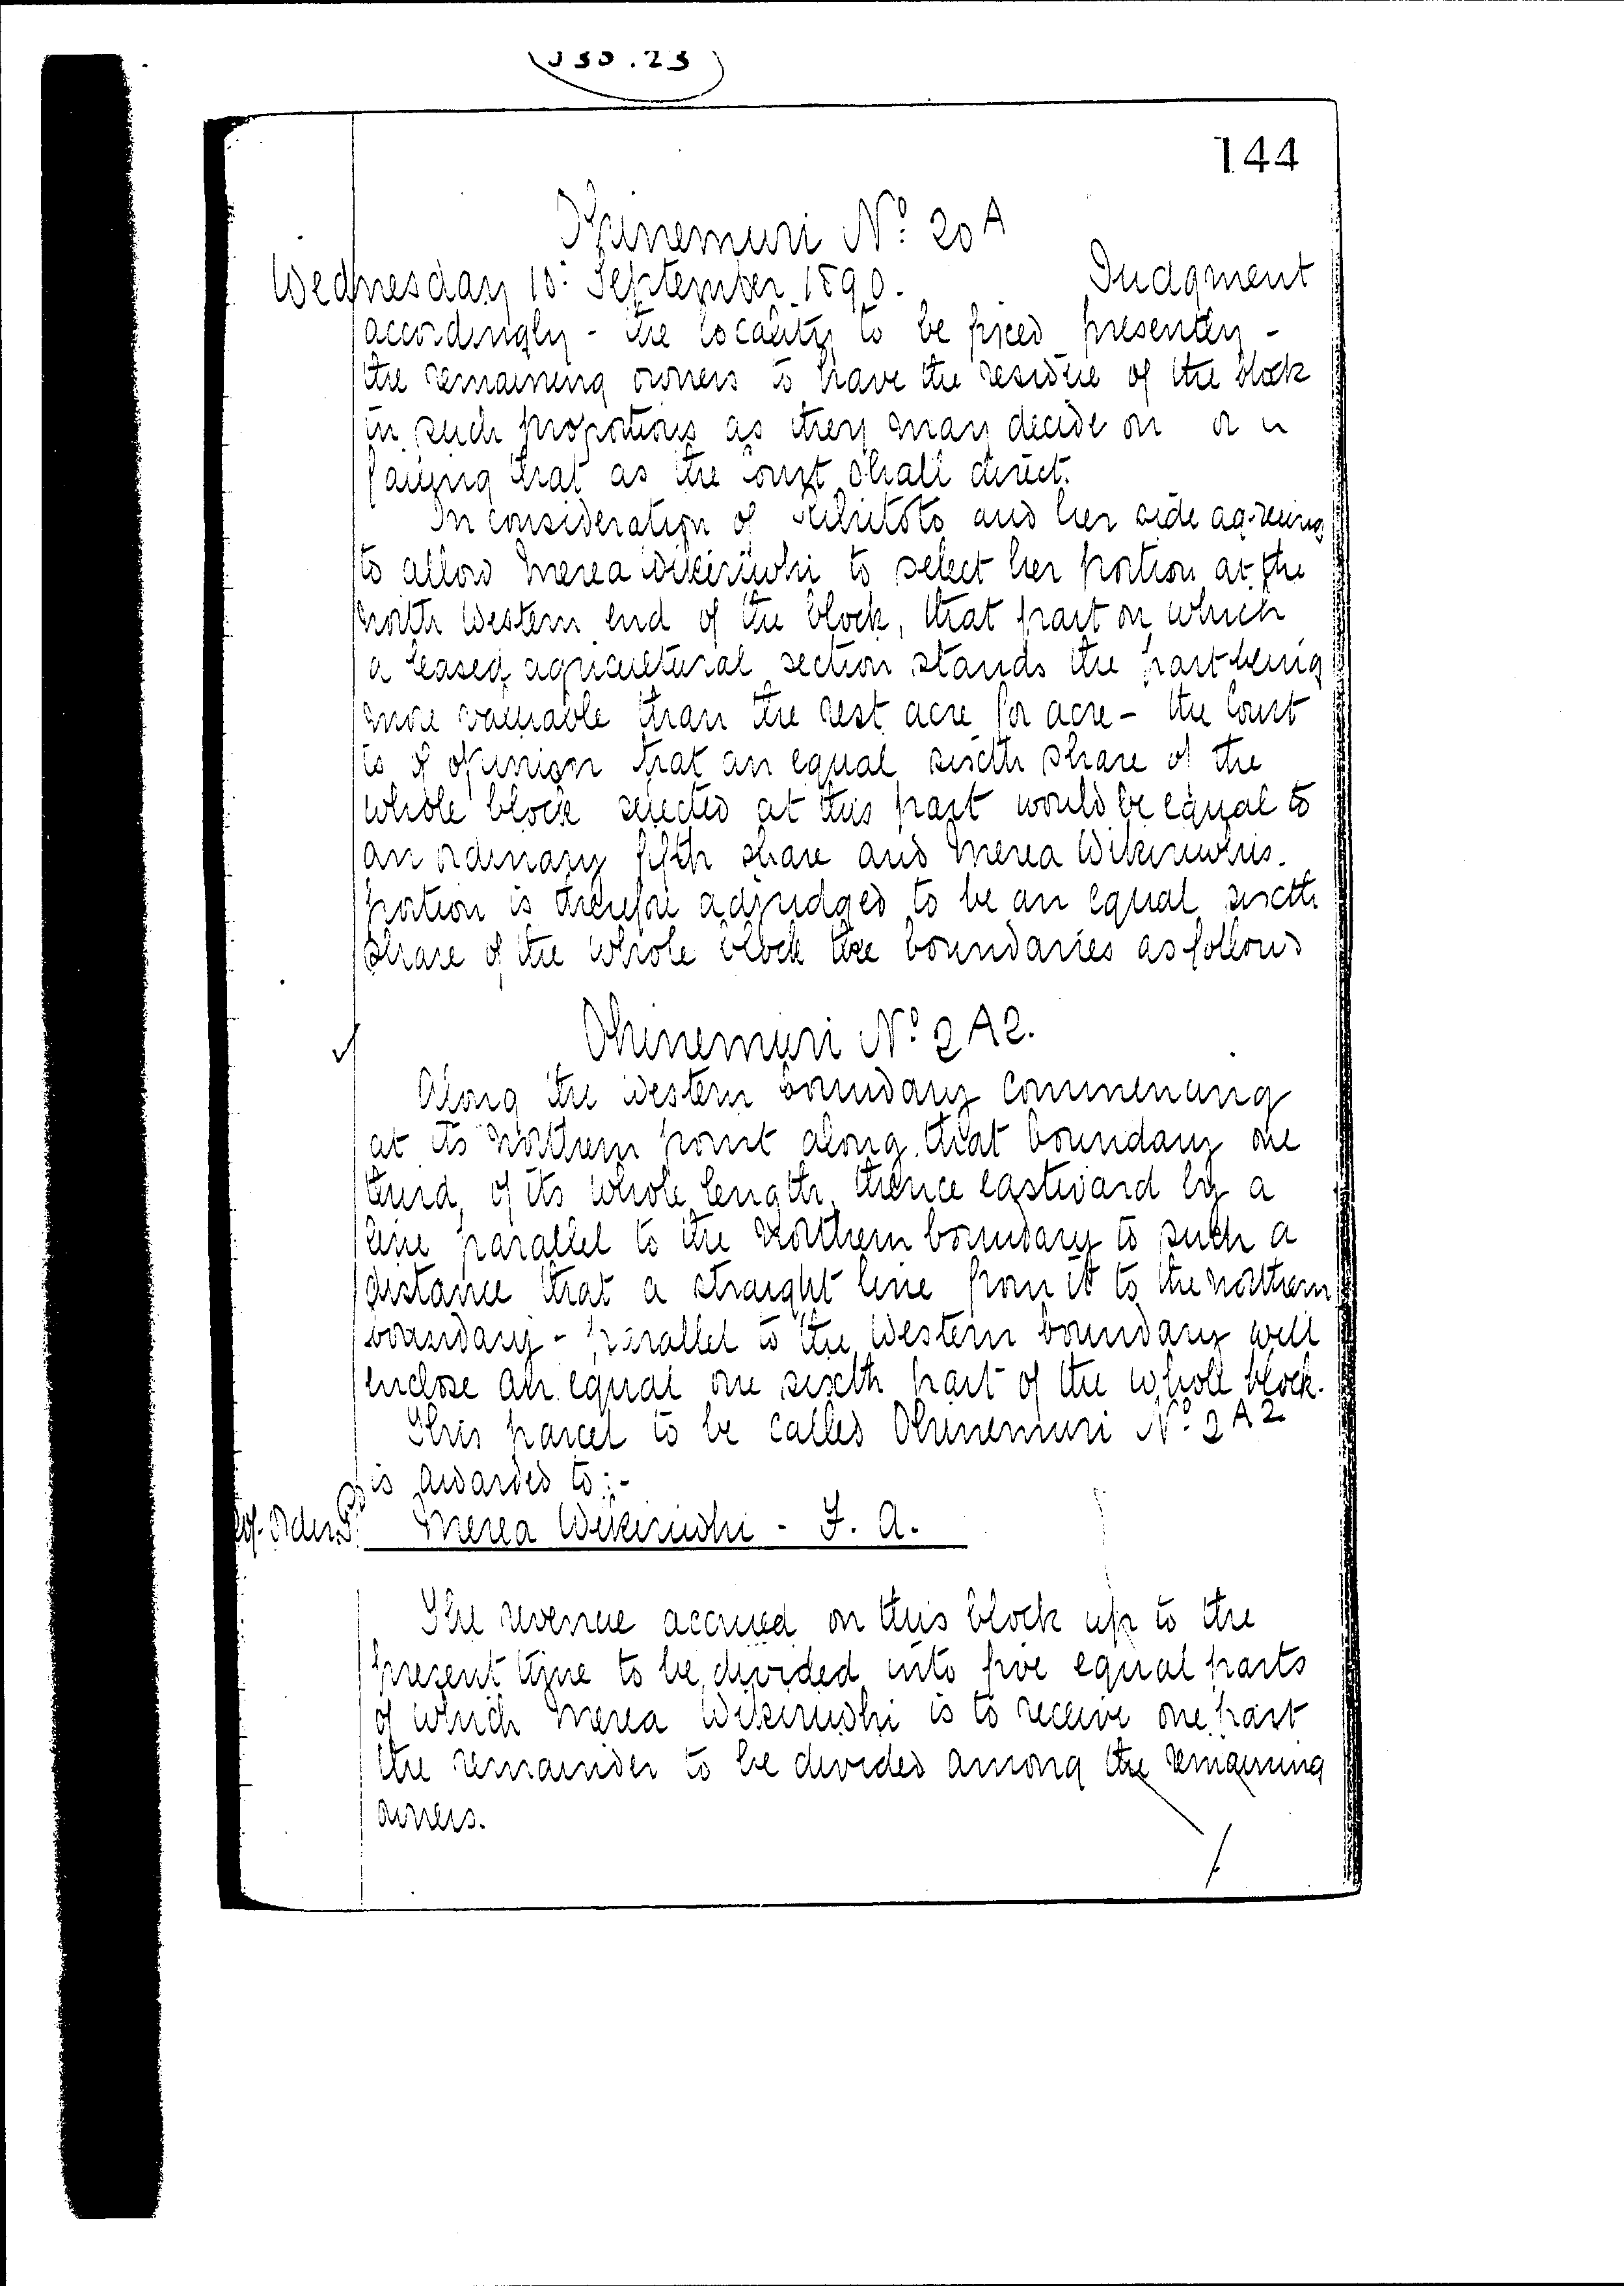 144
Ohinemuri No. 20 A
Wednesday 10: September 1890. Judgment
accordingly - the locality to be fixed presently -
the remaining owners to have the residue of the block
in such proportions as they may decide on or
failing that as the Court shall direct.
In consideration of and her side agreeing
to allow Merea Wikiriwhi to select her portion at the
North Western end of the block, that part on which
a leased agricultural section stands the part being
more valuable than the rest acre for acre - the Court
is of opinion that an equal sixth share of the
whole block selected at this part would be equal to
an ordinary fifth share and Merea Wikiriwhis.
portion is therefore adjudged to be an equal sixth
share of the whole block the boundaries as follows
Ohinemuri No. 2 A2.
Along the western boundary commencing
at its Northern point along that boundary one
third, of its whole length, thence eastward by a
line parallel to the Northern boundary to such a
distance that a straight line from it to the northern
boundary - parallel to the Western boundary will
enclose an equal one sixth part of the whole block.
This parcel to be called Ohinemuri No. 2 A2
is awarded to:-
Merea Wikiriwhi - F. A.
The revenue accrued on this block up to the
present time to be divided into five equal parts
of which Merea Wikiriwhi is to receive one part
the remainder to be divided among the remaining
owners.